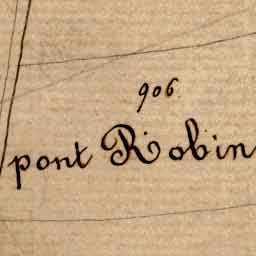 906.
pont Robin